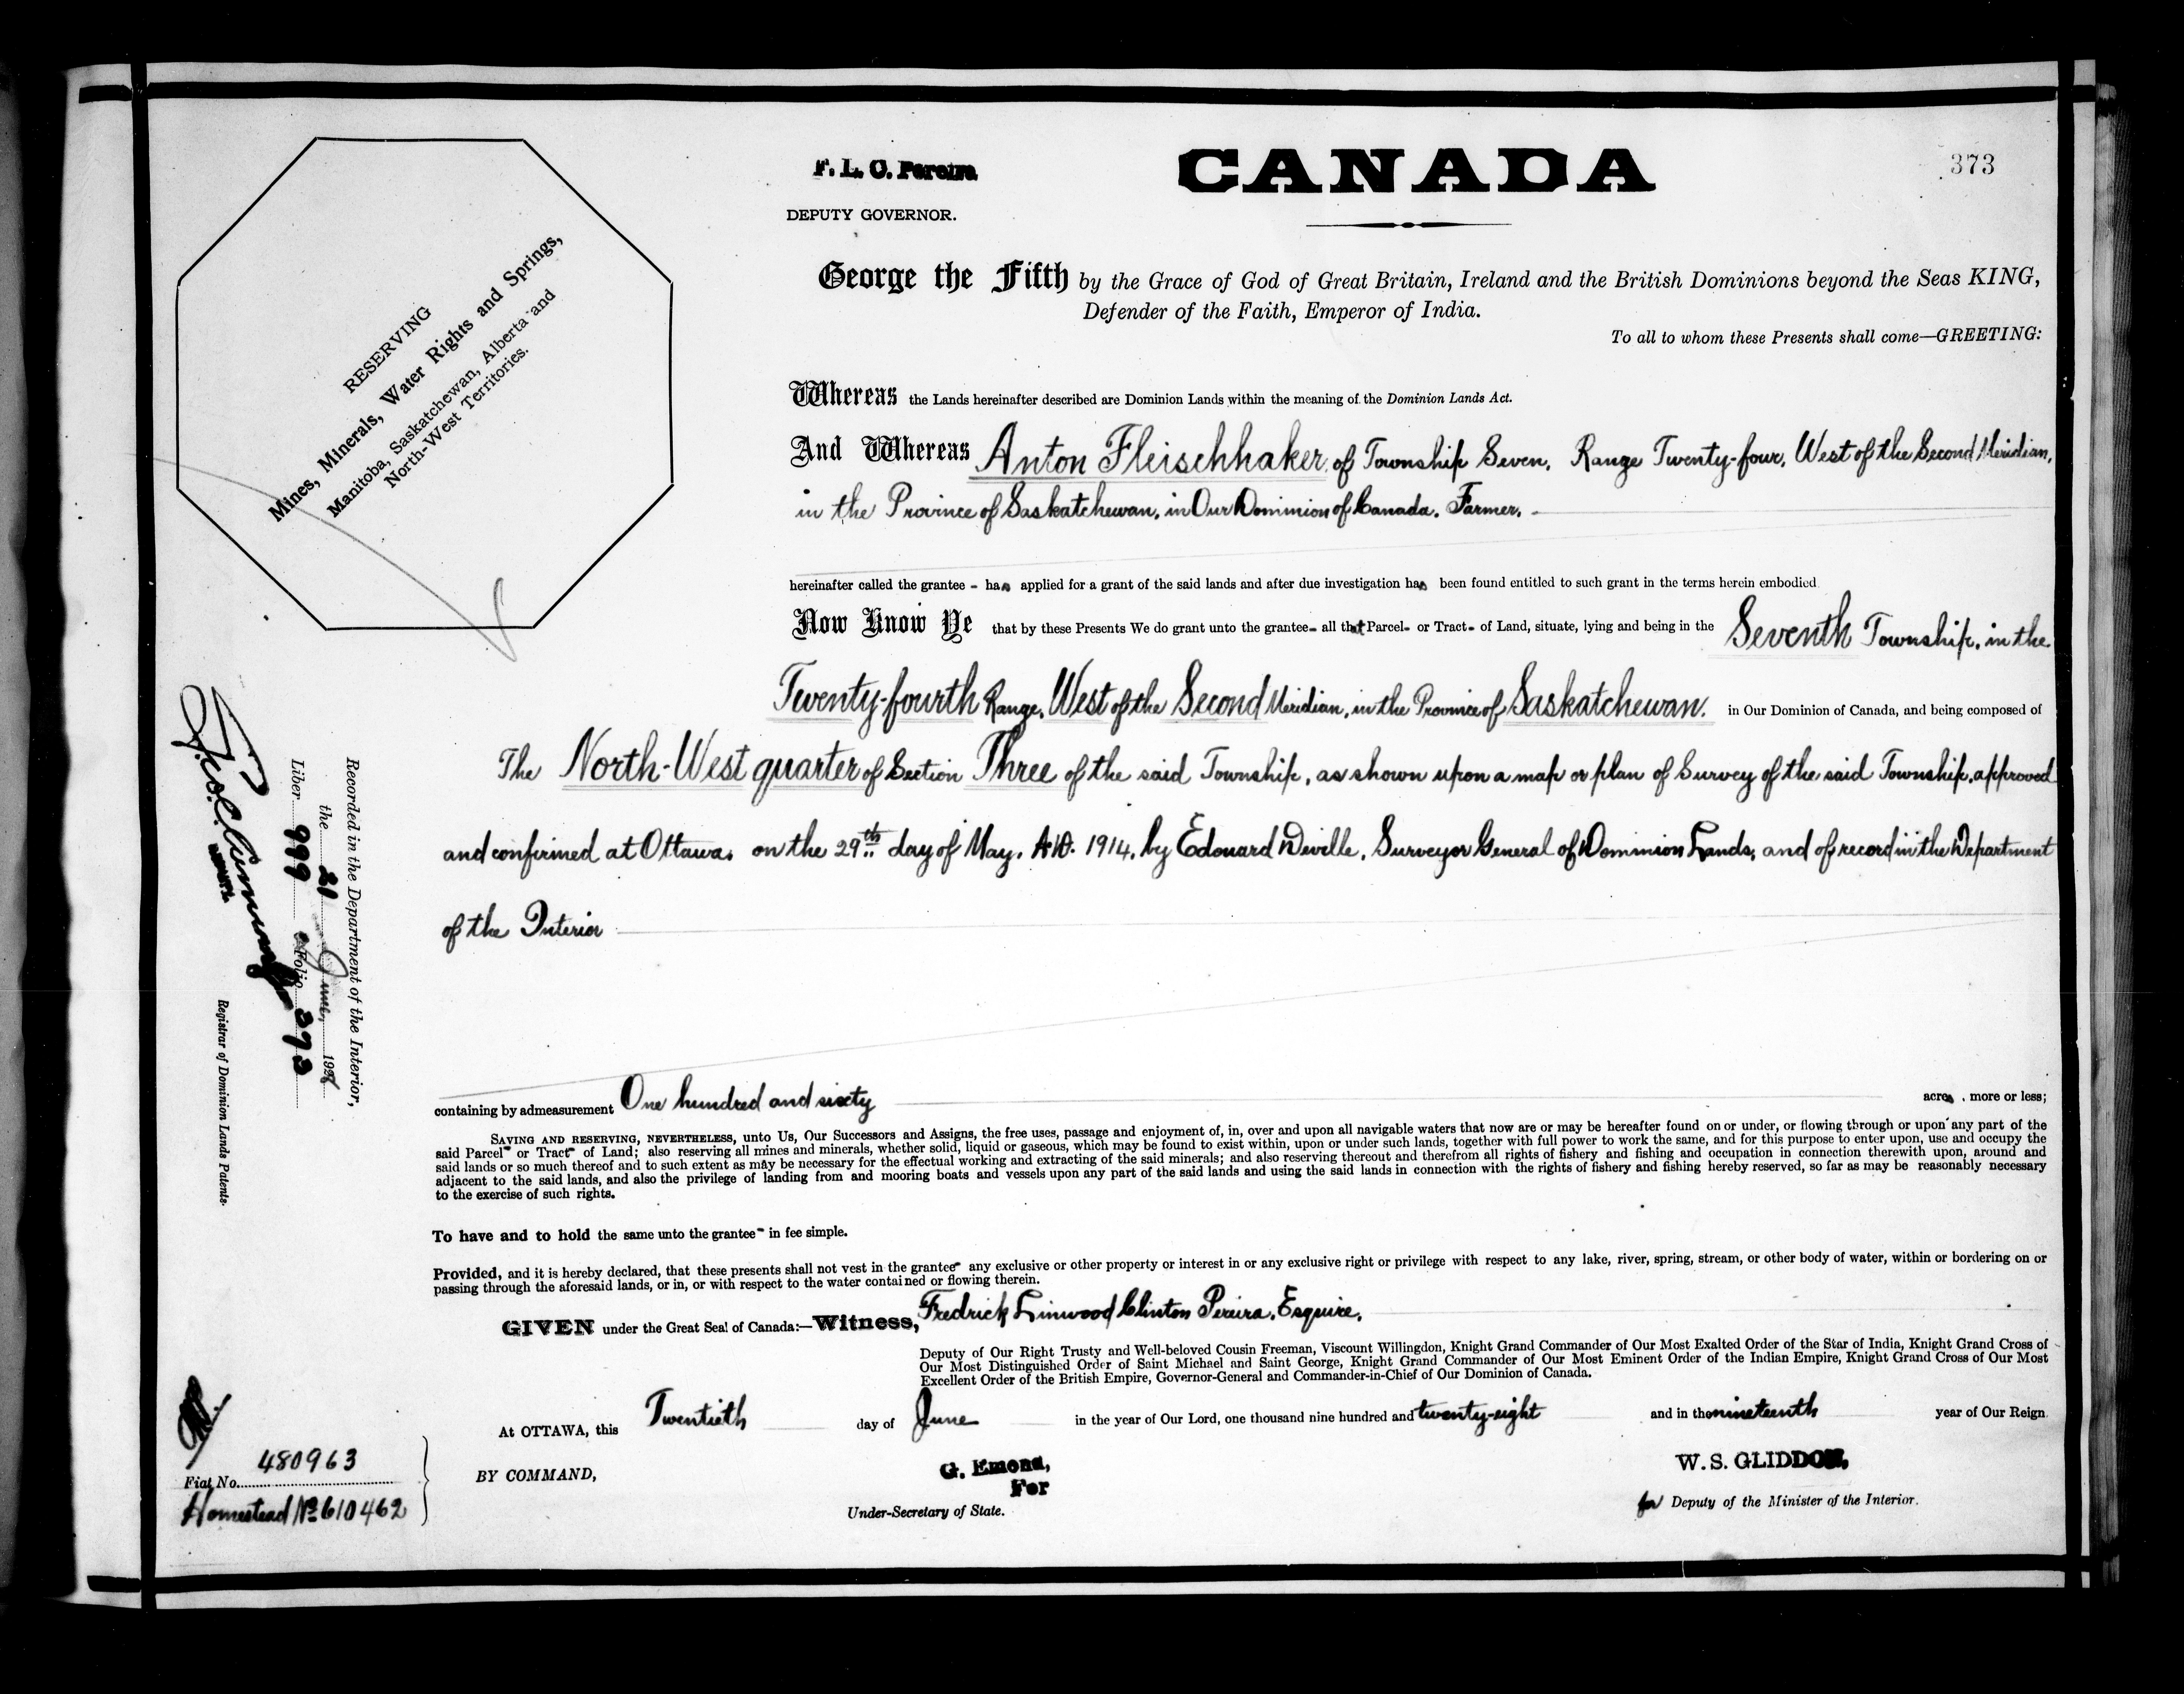 373
F. L. C. Pereira
DEPUTY GOVERNOR.
CANADA
RESERVING
Mines, Minerals, Water Rights and Springs,
Manitoba, Saskatchewan, Alberta and
North-West Territories.
George the Fifth by the Grace of God of Great Britain, Ireland and the British Dominions beyond the Seas KING,
Defender of the Faith, Emperor of India.
To all to whom these Presents shall come—GREETING:
Whereas the Lands hereinafter described are Dominion Lands within the meaning of the Dominion Lands Act.
And Whereas Anton Fleischhaker of Township Seven, Range Twenty-four, West of the Second Meridian,
in the Province of Saskatchewan, in Our Dominion of Canada. Farmer.
hereinafter called the grantee - has applied for a grant of the said lands and after due investigation has been found entitled to such grant in the terms herein embodied
Now Know Ye that by these Presents We do grant unto the grantee- all that Parcel- or Tract- of Land, situate, lying and being in the Seventh Township, in the
Twenty-fourth Range, West of the Second Meridian, in the Province of Saskatchewan. in Our Dominion of Canada, and being composed of
The North-West quarter of Section Three of the said Township, as shown upon a map or plan of Survey of the said Township, approved
and confirmed at Ottawa, on the 29th day of May, A.D. 1914, by Edouard Deville, Surveyor General of Dominion Lands, and of record in the Department
of the Interior
containing by admeasurement One hundred and sixty acres, more or less;
SAVING AND RESERVING, NEVERTHELESS, unto Us, Our Successors and Assigns, the free uses, passage and enjoyment of, in, over and upon all navigable waters that now are or may be hereafter found on or under, or flowing through or upon any part of the
said Parcel- or Tract- of Land; also reserving all mines and minerals, whether solid, liquid or gaseous, which may be found to exist within, upon or under such lands, together with full power to work the same, and for this purpose to enter upon, use and occupy the
said lands or so much thereof and to such extent as may be necessary for the effectual working and extracting of the said minerals; and also reserving thereout and therefrom all rights of fishery and fishing and occupation in connection therewith upon, around and
adjacent to the said lands, and also the privilege of landing from and mooring boats and vessels upon any part of the said lands and using the said lands in connection with the rights of fishery and fishing hereby reserved, so far as may be reasonably necessary
to the exercise of such rights.
To have and to hold the same unto the grantee- in fee simple.
Provided, and it is hereby declared, that these presents shall not vest in the grantee- any exclusive or other property or interest in or any exclusive right or privilege with respect to any lake, river, spring, stream, or other body of water, within or bordering on or
passing through the aforesaid lands, or in, or with respect to the water contained or flowing therein.
GIVEN under the Great Seal of Canada:—Witness, Fredrick Linwood Clinton Pereira, Esquire,
Deputy of Our Right Trusty and Well-beloved Cousin Freeman, Viscount Willingdon, Knight Grand Commander of Our Most Exalted Order of the Star of India, Knight Grand Cross of
Our Most Distinguished Order of Saint Michael and Saint George, Knight Grand Commander of Our Most Eminent Order of the Indian Empire, Knight Grand Cross of Our Most
Excellent Order of the British Empire, Governor-General and Commander-in-Chief of Our Dominion of Canada.
At OTTAWA, this Twentieth day of June in the year of Our Lord, one thousand nine hundred and twenty-eight and in the nineteenth year of Our Reign
BY COMMAND,
G. Emond,
For
Under-Secretary of State.
W. S. GLIDDON,
for Deputy of the Minister of the Interior.
Recorded in the Department of the Interior,
the 21 June, 1928
Liber 999 Folio 373
Registrar of Dominion Lands Patents.
Fiat No. 480963
Homestead No 610462